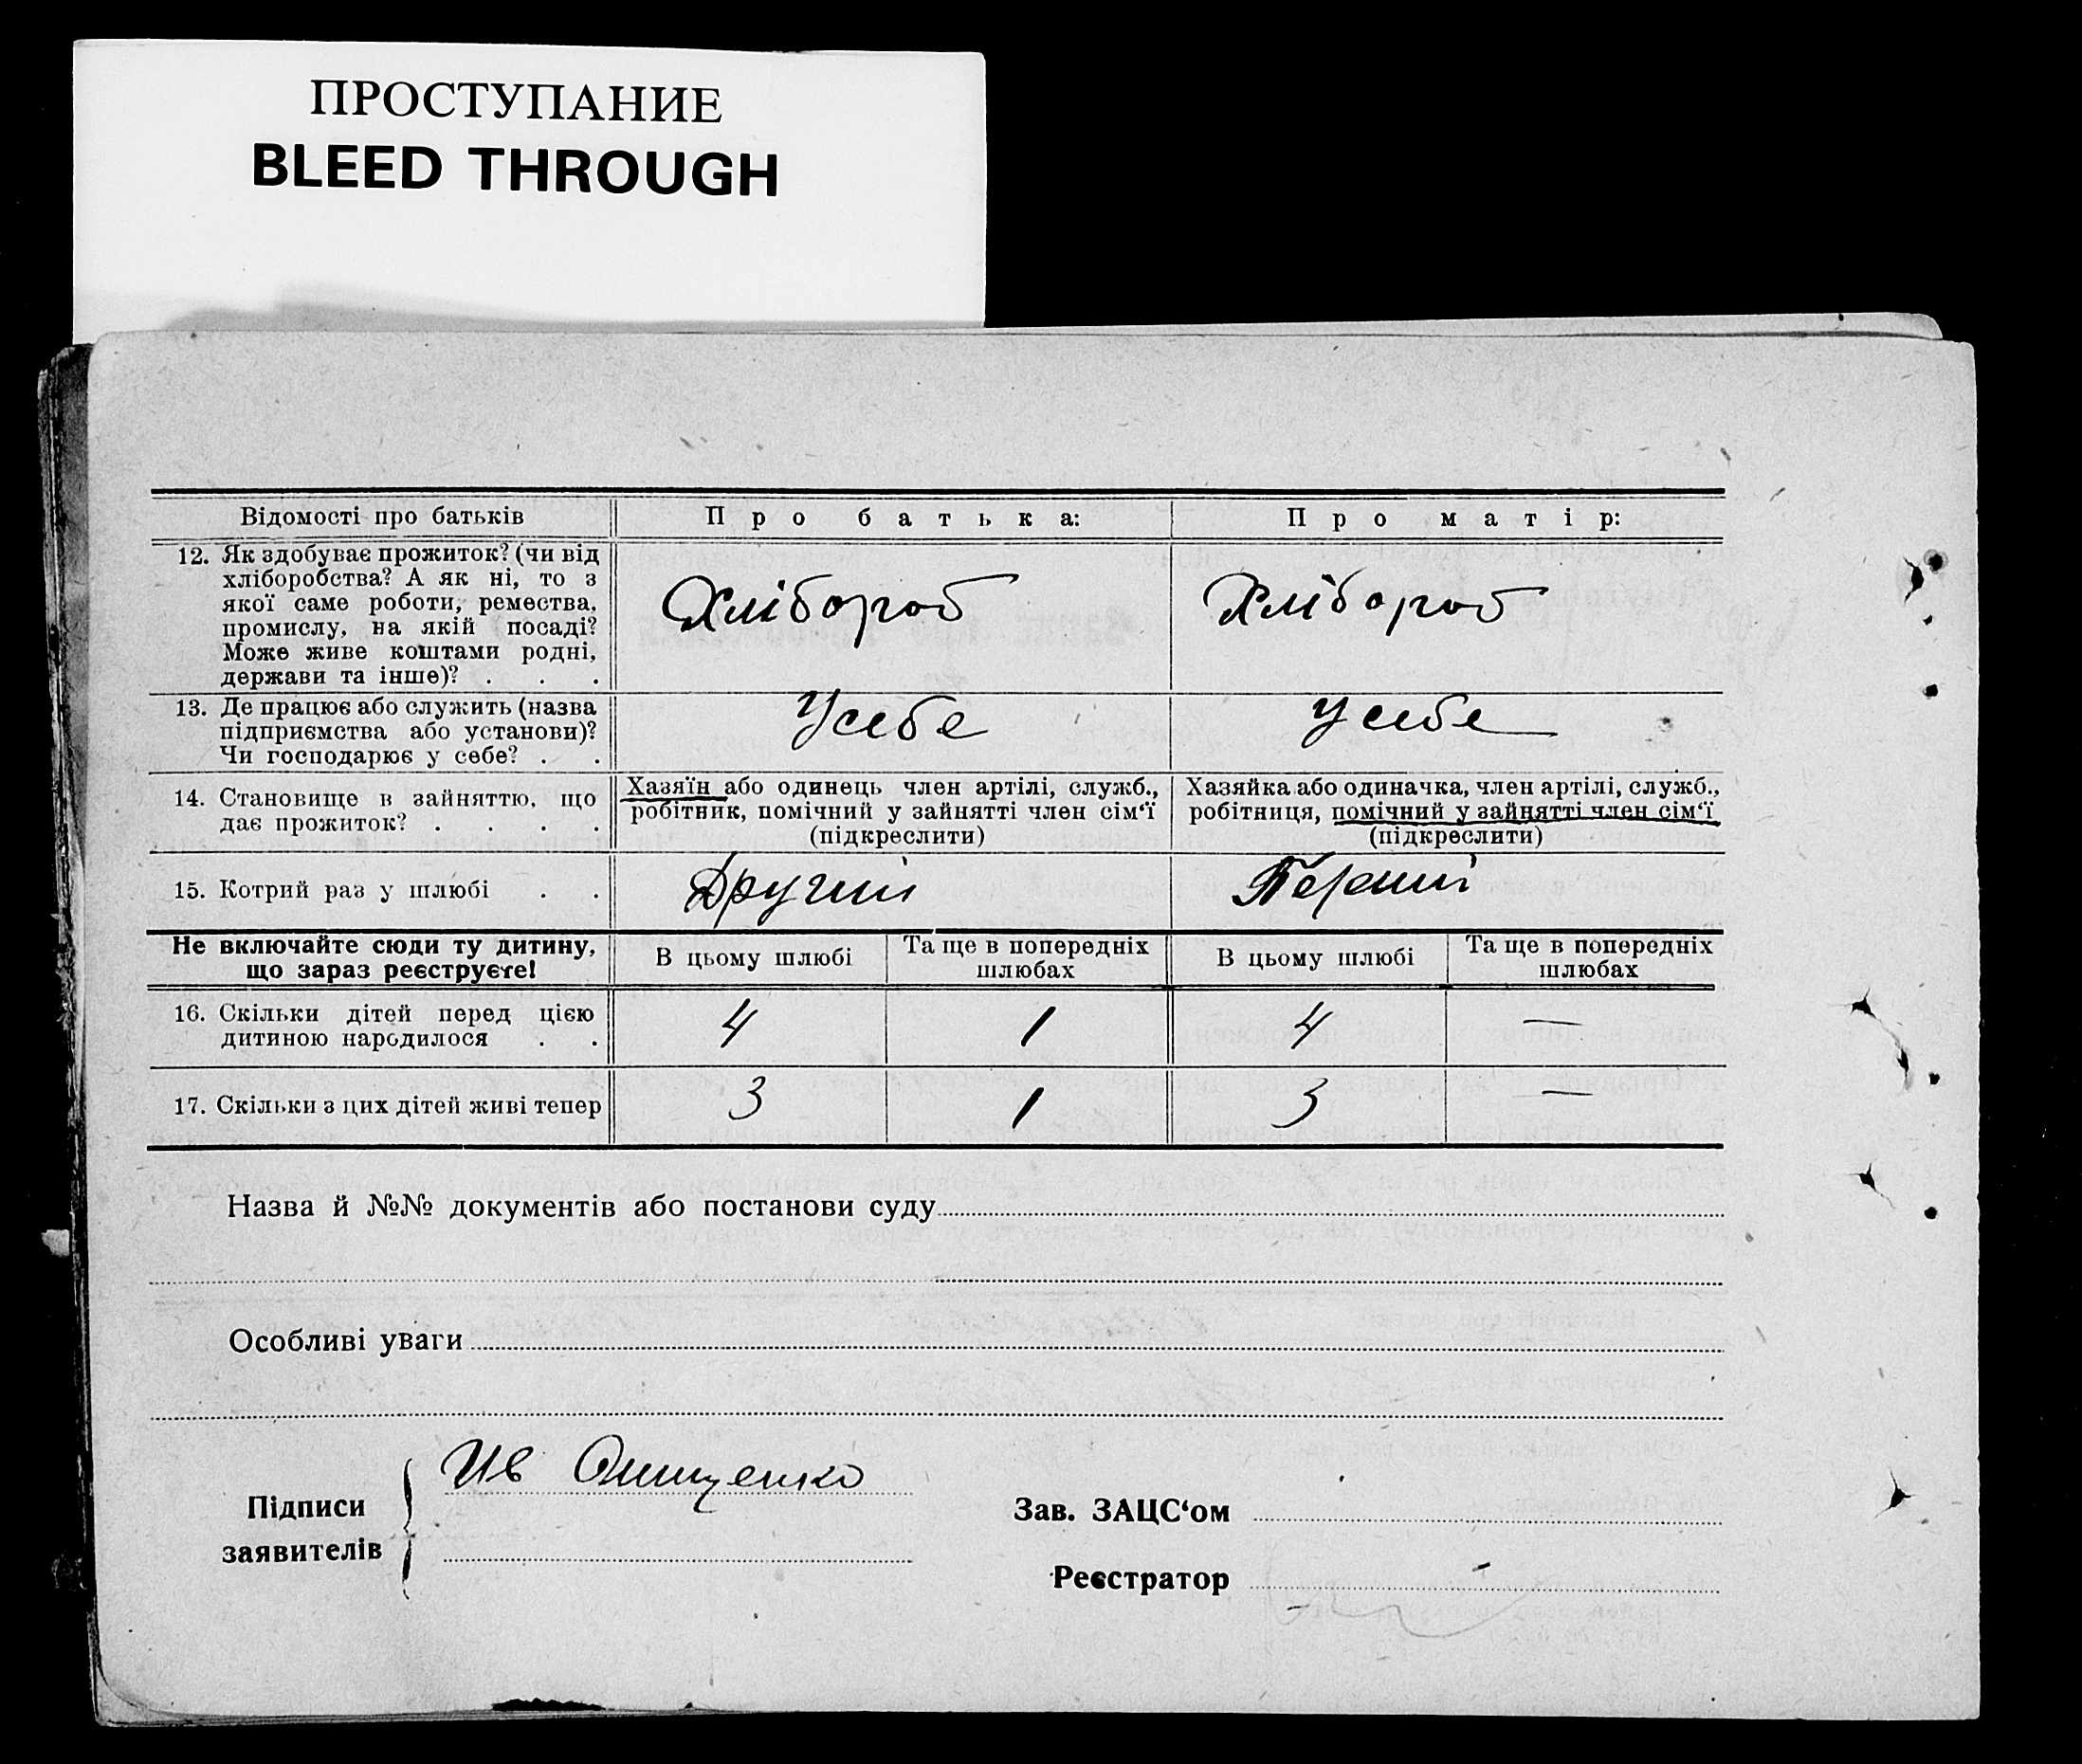 ПРОСТУПАНИЕ
BLEED THROUGH
Відомості про батьків
Про батька:
Про матір:
12. Як здобуває прожиток? (чи від
хліборобства? А як ні, то з
якої саме роботи, ремества,
промислу, на якій посаді?
Може живе коштами родні,
держави та інше)? . . .
Хлібороб
Хлібороб
13. Де працює або служить (назва
підприємства або установи)?
Чи господарює у себе? . .
У себе
У себе
14. Становище в зайняттю, що
дає прожиток? . . . .
Хазяїн або одинець член артілі, служб.,
робітник, помічний у зайнятті член сім‘ї
(підкреслити)
Хазяйка або одиначка, член артілі, служб.,
робітниця, помічний у зайнятті член сім‘ї
(підкреслити)
15. Котрий раз у шлюбі . .
Другий
Перший
Не включайте сюди ту дитину,
що зараз реєструєте!
В цьому шлюбі
Та ще в попередніх
шлюбах
В цьому шлюбі
Та ще в попередніх
шлюбах
16. Скільки дітей перед цією
дитиною народилося . .
4
1
4
—
17. Скільки з цих дітей живі тепер
3
1
3
—
Назва й №№ документів або постанови суду
Особливі уваги
Підписи
заявителів
Ив Онищенко
Зав. ЗАЦС‘ом
Реєстратор